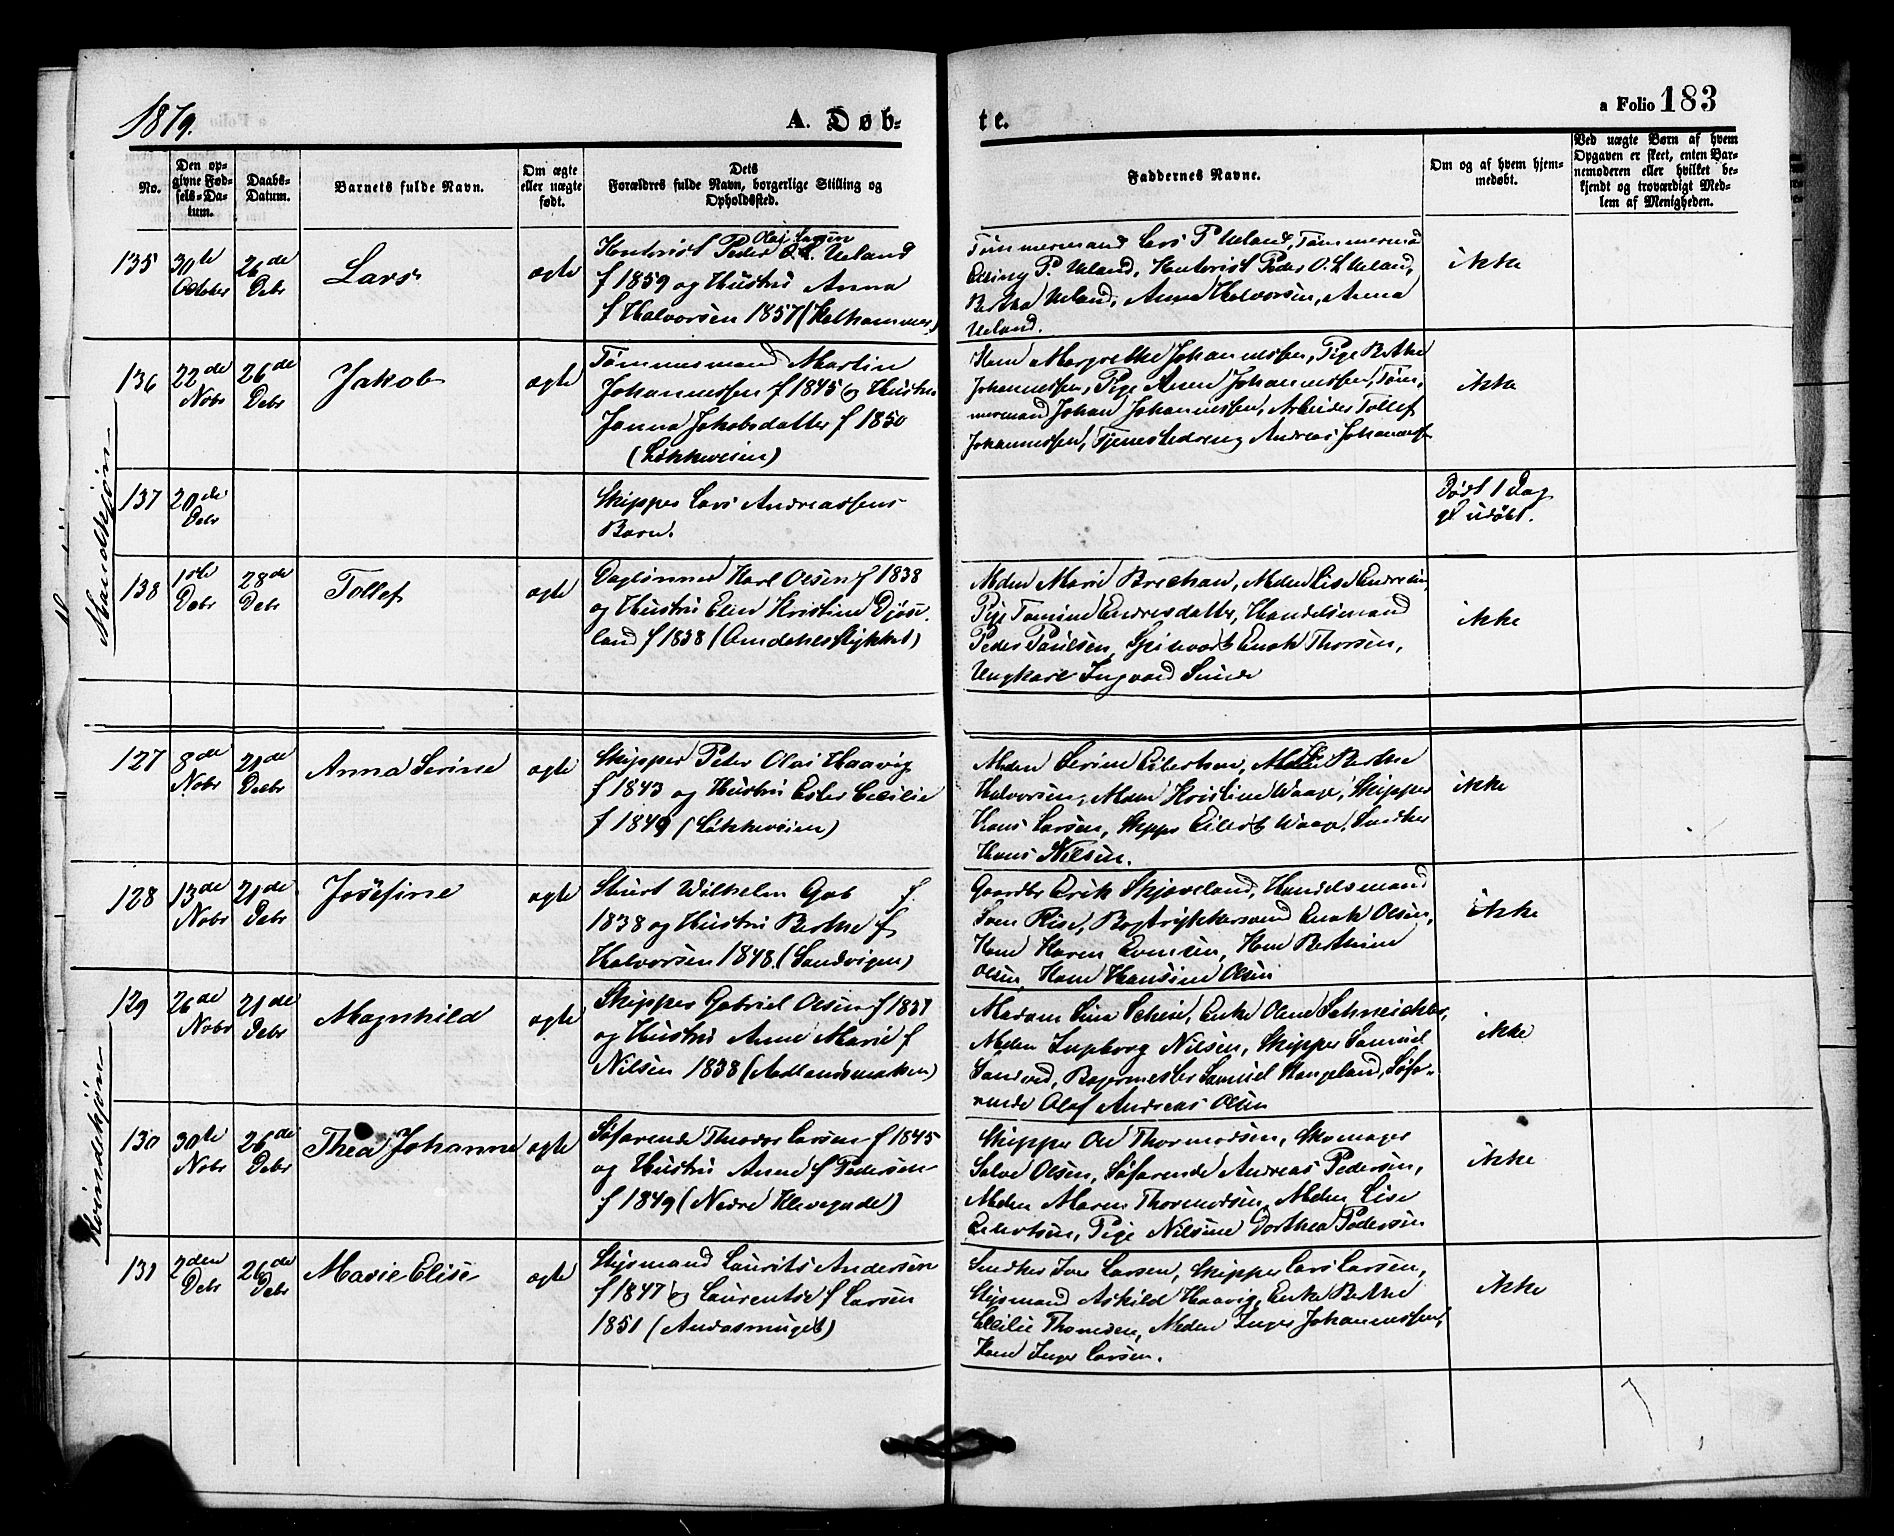 1879.
A. Døb-
te.
a Folio 183
No.
Den op-
givne Fød-
sels-Da-
tum.
Daabs-
Datum.
Barnets fulde Navn.
Om ægte
eller uægte
født.
Dets
Forældres fulde Navn, borgerlige Stilling og
Opholdssted.
Faddernes Navne.
Om og af hvem hjem-
medøbt.
Ved uægte Børn af hvem
Opgaven er skeet, enten Bar-
nemoderen eller hvilket be-
kjendt og troværdigt Med-
lem af Menigheden.
Mandskjøn
135
30te
October
26de
Debr
Lars
ægte
Olai Larsen
Kontorist Peder O.L. Ueland
f 1859 og Hustru Anna
f Halvorsen 1857 (Kalhammer)
Tømmermand Lars P Ueland, Tømmermd
Elling P. Ueland, Kontorist Peder O. L Ueland,
Bertha Ueland, Anna Halvorsen, Anna
Ueland.
ikke
136
22de
Nobr
26de
Debr
Jakob
ægte
Tømmermand Martin
Johannessen f 1845 og Hustru
Janna Jakobsdatter f 1850
(Løkkeveien)
Kone Margrethe Johannessen, Pige Berthe
Johannessen, Pige Anne Johannessen, Tøm-
mermand Johan Johannessen, Arbeider Tollef
Johannessen, Tjenestedreng Andreas Johanness
ikke
137
20de
Debr
Skipper Lars Andreassens
Barn.
Dødt 1 Dag
gl udøbt.
138
1ste
Debr
28de
Debr
Tollef
ægte
Daglønner Karl Olsen f 1838
og Hustru Elen Kristine Djøse-
land f 1838 (Omdahlsstykket)
Mdm Marie Brekan, Mdm Lise Endresen,
Pige Tomine Endresdatter, Handelsmand
Peder Paulsen, Enok Thorsen,
Ungkarl Ingvard Sunde
ikke
Kvindekjøn
127
8de
Nobr
21de
Decbr
Anna Serine
ægte
Skipper Peter Olai Haavig
f 1843 og Hustru Ester Cecilie
f 1849 (Løkkeveien)
Mdm Serine Eilertsen, Mdm Berthe
Halvorsen, Mdm Kristine Waage, Skipper
Hans Larsen, Skippr Eilert Waage, Snedker
Hans Nilsen.
ikke
128
13de
Nobr
21de
Debr
Josefine
ægte
Stuert Wilhelm Gab f.
1838 og Hustru Berthe f
Halvorsen 1848. (Sandvigen)
Gaardbr Erik Skjæveland, Handelsmand
Sven Rise, Bogtrykkersvend Enok Olsen,
Kone Karen Evensen, Kone Berthine
Olsen, Kone Hansine Olsen
ikke
129
26de
Nobr
21de
Debr
Magnhild
ægte
Skipper Gabriel Olsen f 1831
og Hustru Anne Marie f
Nilsen 1838 (Aadlandsmarken)
Madam Lina Scheie, Enke Olene Schneichler,
Mdm Ingeborg Nilsen, Skipper Samuel
Sandved, Bagermester Samuel Stangeland, Søfa-
rende Olaf Andreas Olsen
ikke
130
30te
Nobr
26de
Debr
Thea Johanne
ægte
Søfarende Theodor Larsen f 1845
og Hustru Anne f Pedersen
f 1849 (Nedre Klevegade)
Skipper Ole Thormodsen, Skomager
Salve Olsen, Søfarende Andreas Pedersen,
Mdm Maren Thormodsen, Mdm Lise
Eilertsen, Pige Nilsine Dorthea Pedersen
ikke
131
2den
Debr
26de
Debr
Marie Elise
ægte
Styrmand Laurits Andersen
f 1847 og Laurentse f Larsen
1851 (Andasmuget)
Snedker Iver Larsen, Skipper Lars Larsen,
Styrmand Askild Haavig, Enke Berthe
Cecilie Thomsen, Mdm Inger Johannessen,
Kone Inger Larsen.
ikke